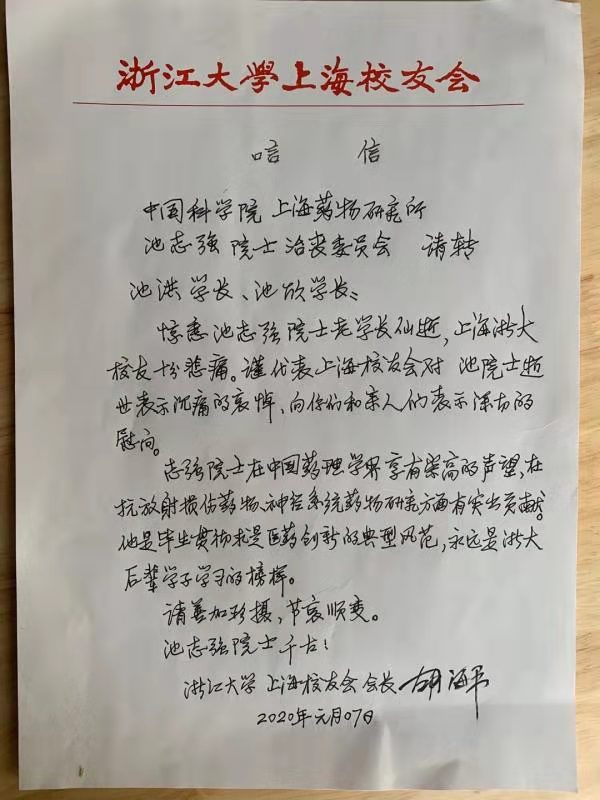 浙江大學上海校友会
唁 信
中国科学院上海药物研究所
池志强院士治丧委员会 请转
池洪学长、池欣学长:
惊悉池志强院士老学长仙逝,上海浙大
校友十分悲痛。谨代表上海校友会对 池院士逝
世表示沉痛的哀悼、向你们和亲人们表示深切的
慰问。
志强院士在中国药理学界享有崇高的声望,在
抗放射损伤药物、神经系统药物研究方面有突出贡献。
他是毕生贯彻求是医药创新的典型风范,永远是浙大
后辈学子学习的榜样。
请善加珍摄,节哀顺变。
池志强院士千古!
浙江大学 上海校友会会长 胡海平
2020年元月07日